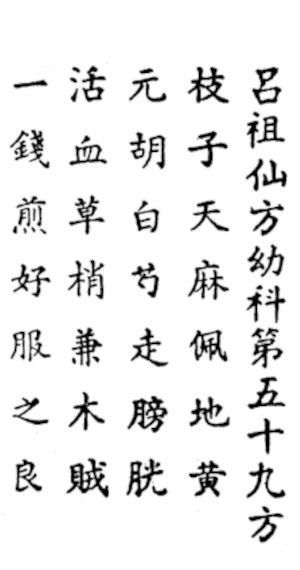 呂祖仙方幼科第五十九方
枝子天麻佩地黃
元胡白芍走膀胱
活血草梢兼木賊
一錢煎好服之良